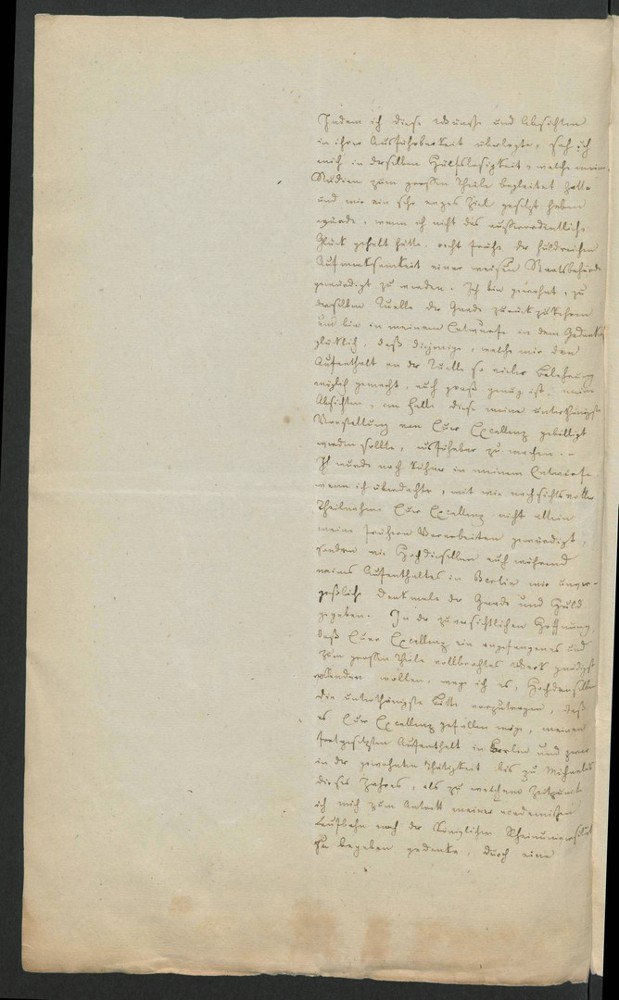 Indem ich diese Wünsche und Absichten
in ihrer Ausführbarkeit überlegte, sah ich
mich in derselben Hülfslosigkeit, welche meine
Studien zum großen Theile begleitet hatte
und mir ein sehr enges Ziel gesetzt haben
würde, wenn ich nicht das außerordentliche
Glück gehabt hätte, recht frühe der huldreichen
Aufmerksamkeit einer weisen Staatsbehörde
gewürdigt zu werden. Ich bin gewohnt, zu
derselben Quelle der Gnade zurückzukehren
und bin in meinem Entwurfe in dem Gedanken
glücklich, daß diejenige, welche mir den
Aufenthalt an der Quelle so vieler Belehrung
möglich gemacht, auch groß genug ist, meine
Absichten, im Falle diese meine unterthänigste
Vorstellung von Euer Excellenz gebilligt
werden sollte, ausführbar zu machen. -
Ich wurde noch kühner in meinem Entwurfe,
wenn ich überdachte, mit wie nachsichtsvoller
Theilnahme Euer Excellenz nicht allein
meine frühern Vorarbeiten gewürdigt,
sondern wie Hochdieselben auch während
meines Aufenthaltes in Berlin mir unver-
geßliche Denkmale der Gnade und Huld
gegeben. In der zuversichtlichen Hoffnung,
daß Euer Excellenz ein angefangenes und
zum großen Theile vollbrachtes Werk gnädigst
vollenden wollen, wage ich es, Hochdenselben
die unterthänigste Bitte vorzutragen, daß
es Euer Excellenz gefallen möge, meinen
fortgesetzten Aufenthalt in Berlin und zwar
in der gewohnten Thätigkeit bis zu Michaelis
dieses Jahres, als zu welchem Zeitpunkte
ich mich zum Antritt meiner academischen
Laufbahn nach der Königlichen Rheinuniversität
zu begeben gedenke, durch eine